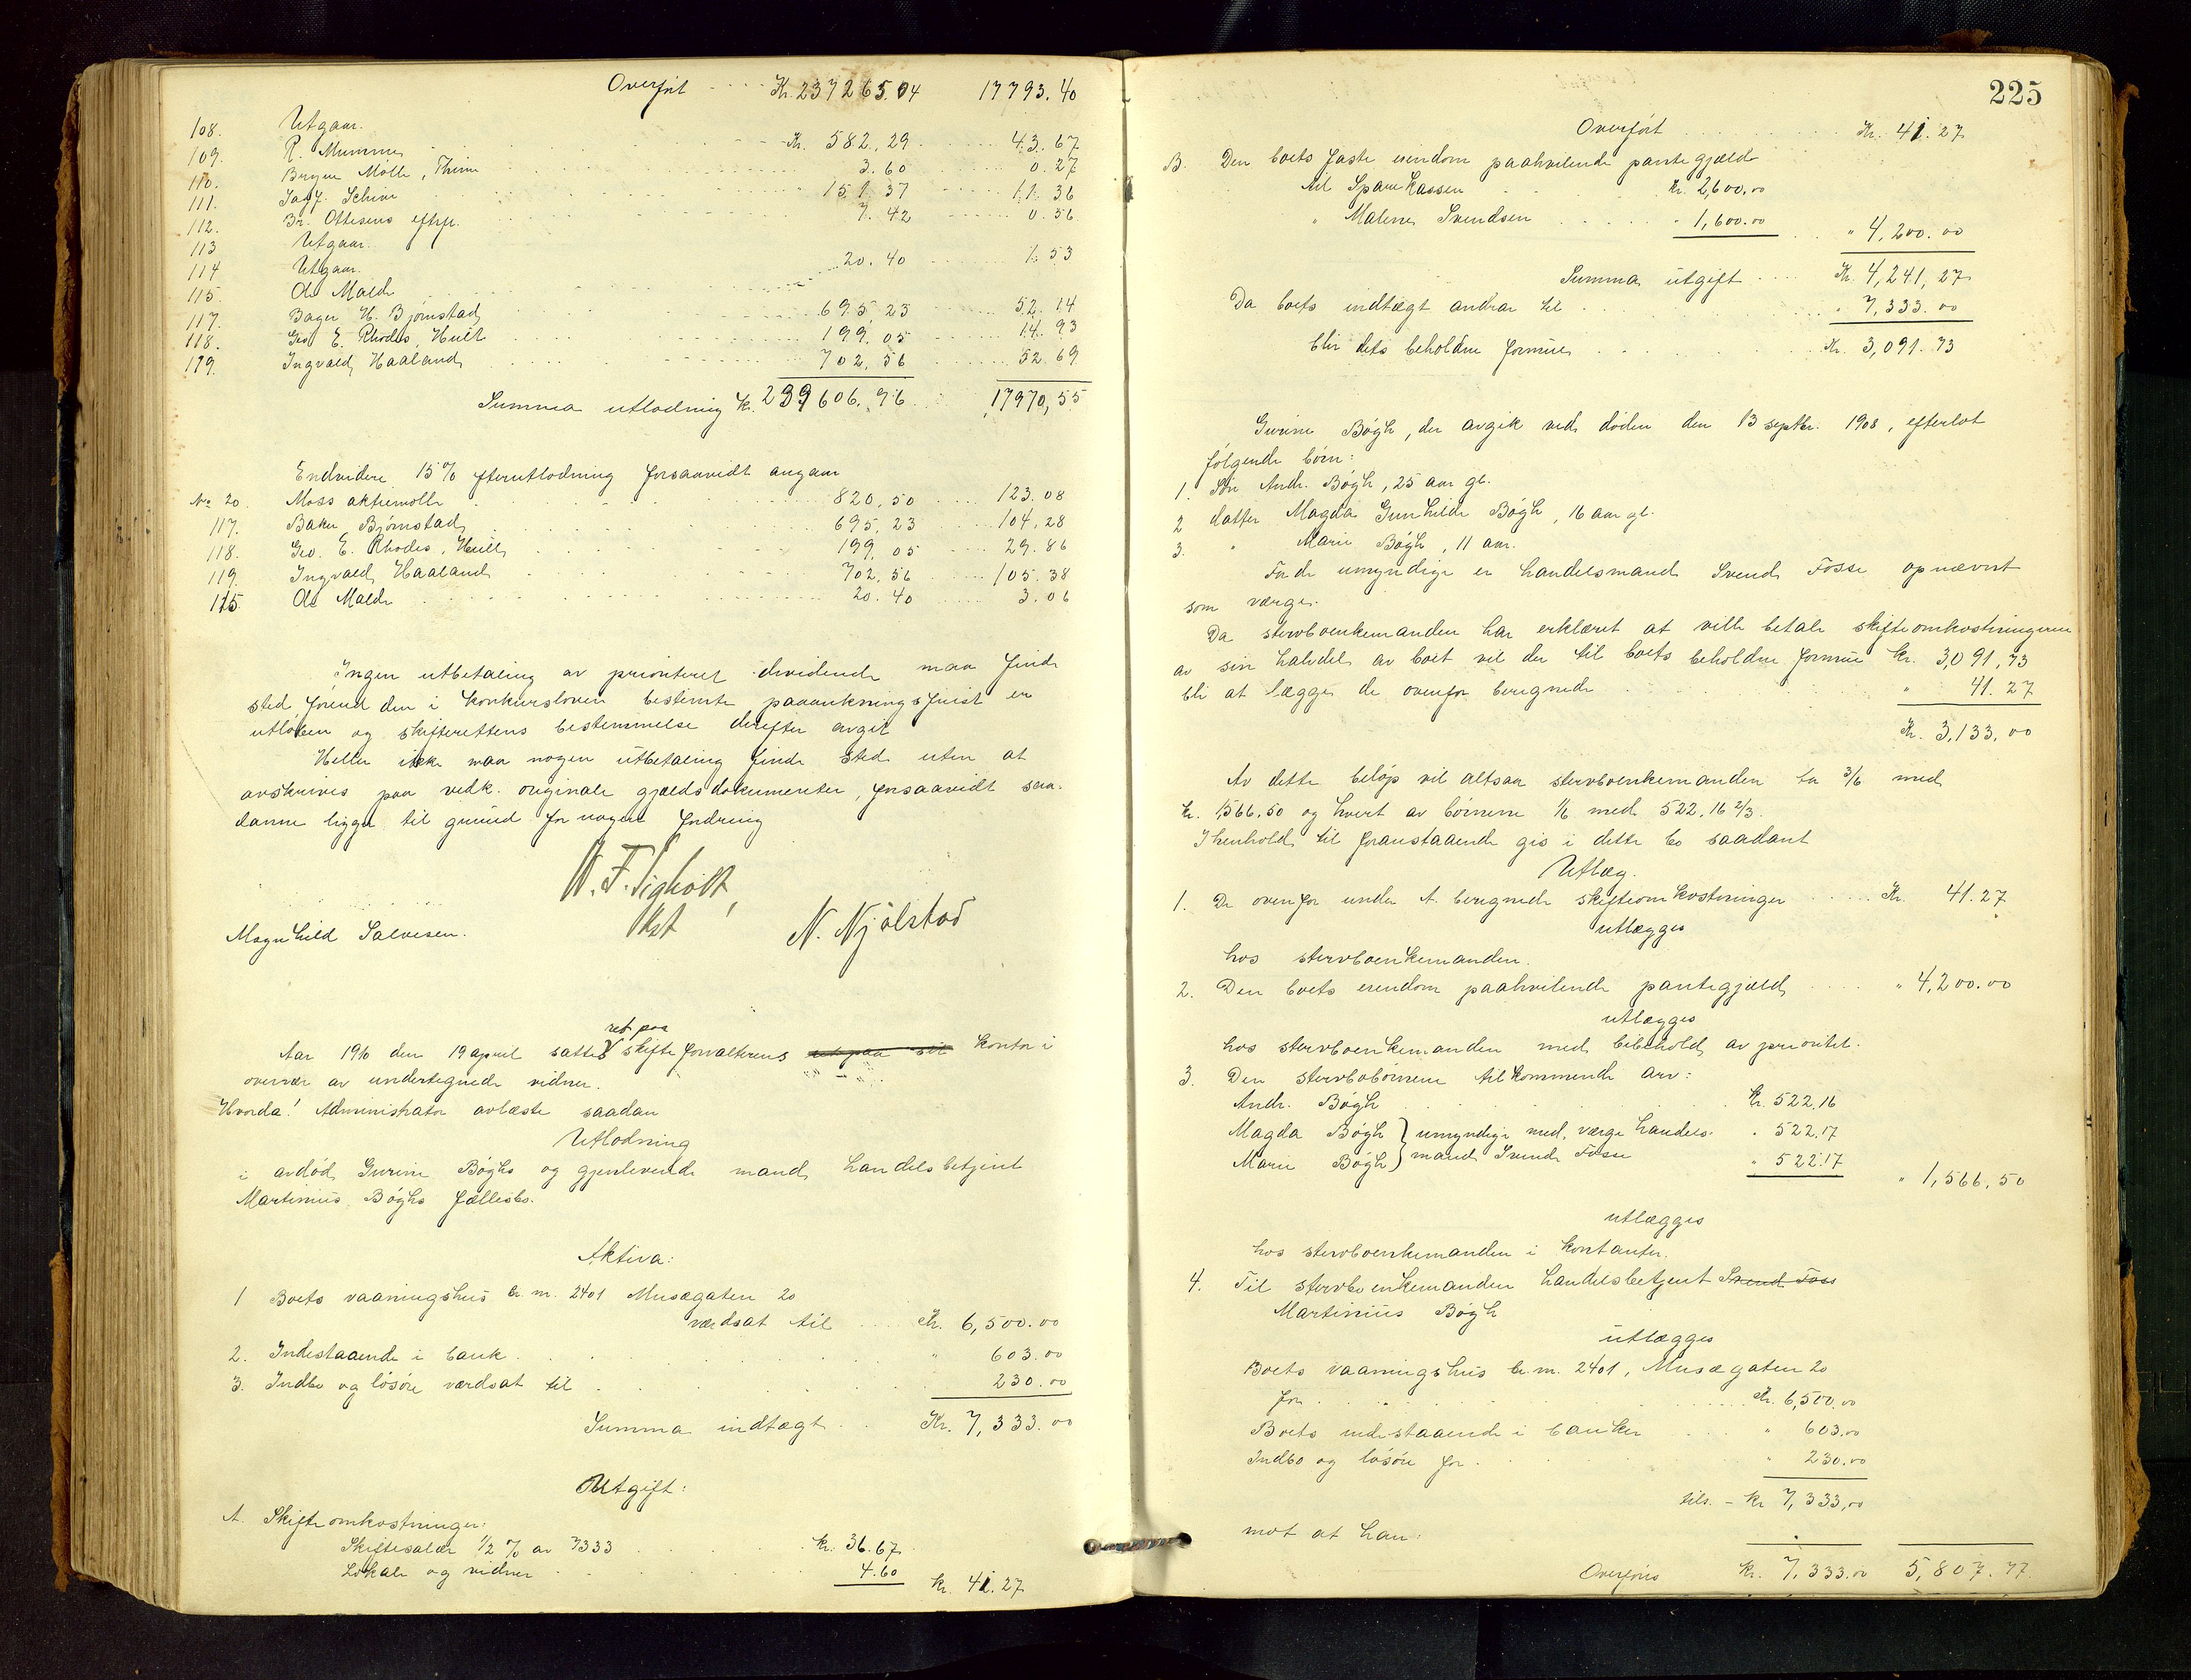 Overført Kr. 237265.04 17793.40
108. Utgaar.
109. R. Mumme Kr. 582.29 43.67
110. Bryne Mølle, Thime 3.60 0.27
111. Jac. Schive 151.37 11.36
112. Br. Ottesens eftfl. 7.42 0.56
113 Utgaar.
114 Utgaar. 20.40 1.53
115. Ole Malde
117. Bager H. Bjørnstad 695.23 52.14
118. Geo E. Rhodes, Hull 199.05 14.93
119. Ingvald Haaland 702.56 52.69
Summa utlodning kr. 239606.96 17970,55
Endvidere 15% efterutlodning forsaavidt angaar
No 20. Moss aktiemølle 820,50 123.08
117. Baker Bjørnstad 695,23 104,28
118. Geo. E. Rhodes, Hull 199.05 29.86
119. Ingvald Haaland 702.56 105.38
115. Ole Malde 20.40 3.06
Ingen utbetaling av prioritert dividende maa finde
sted førend den i konkursloven bestemte paaankningsfrist er
utløben og skifterettens bestemmelse derefter avgit
Heller ikke maa nogen utbetaling finde sted uten at
avskrives paa vedk. originale gjældsdokumenter, forsaavidt saa-
danne ligger til grund for nogen fordring
Magnhild Salvesen. N. Njølstad
ret paa
Aar 1910 den 19 april sattes skifteforvalterens ret paa sit kontor i
overvær av undertegnede vidner.
Hvorda! Administrator avlæste saadan
Utlodning
i avdød Gurine Bøghs og gjenlevende mand, handelsbetjent
Martinius Bøghs fællesbo.
Aktiva:
1 Boets vaaningshus br. m. 2401 Musægaten 20
værdsat til Kr. 6,500.00
2. Indestaaende i bank " 603.00
3. Indbo og løsøre værdsat til 230.00
Summa indtægt Kr. 7,333.00
Utgift:
A. Skifteomkostninger:
Skiftesalær 1/2 % av 7333 kr. 36.67
Lokale og vidner 4.60 kr. 41.27
225
Overført Kr. 41.27
B. Den boets faste eiendom paahvilende pantegjæld
til Sparekassen kr. 2,600.00
" Malene Svendsen " 1,600.00 " 4,200.00
Summa utgift Kr. 4,241,27
Da boets indtægt andrar til " 7,333.00
blir dets beholdne formue Kr. 3,091.73
Gurine Bøgh, der avgik ved døden den 13 septbr. 1908, efterlot
følgende børn:
1. Søn Andr. Bøgh, 25 aar gl.
2 datter Magda Gunhilde Bøgh, 16 aar gl.
3. " Marie Bøgh, 11 aar.
For de umyndige er handelsmand Svend Fosse opnævnt
som værge.
Da stervboenkemanden har erklæret at ville betale skifteomkostningerne
av sin halvdel av boet vil der til boets beholdne formue Kr. 3,091,73
bli at lægge de ovenfor beregnede " 41.27
Kr. 3,133,00
Av dette beløp vil altsaa stervboenkemanden ta 3/6 med
kr. 1,566.50 og hvert av børnene 1/6 med 522.16 2/3.
I henhold til foranstaaende gis i dette bo saadant
Utlæg.
1. De ovenfor under A. beregnede skifteomkostninger Kr. 41.27
utlægges
hos stervboenkemanden.
2. Den boets eiendom paahvilende pantegjæld " 4,200.00
utlægges
hos stervboenkemanden med bibehold av prioritet.
3. Den stervbobørnene tilkommende arv:
Andr. Bøgh Kr. 522.16
Magda Bøgh } umyndige med, værge handels- " 522.17
Marie Bøgh } mand Svend Fosse " 522.17
" 1,566,50
utlægges
hos stervboenkemanden i kontanter.
4. Til stervboenkemanden handelsbetjent Svend Foss
Martinius Bøgh
utlægges
Boets vaaningshus br. m. 2401, Musægaten 20
for Kr. 6,500.00
Boets indestaaende i banken " 603.00
Indbo og løsøre for " 230.00
tils. - kr 7,333,00
mot at han:
Overføres kr. 7,333.00 5,807.77